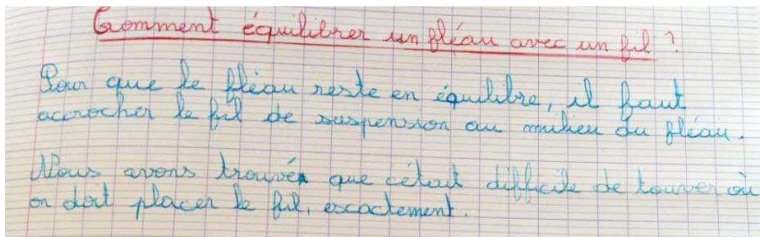 Comment équilibrer un fléau avec un fil ?
Pour que le fléau reste en équilibre, il faut
accrocher le fil de suspension au milieu du fléau.
Nous avons trouvé que c'était difficile de touver où
on doit placer le fil, exactement.